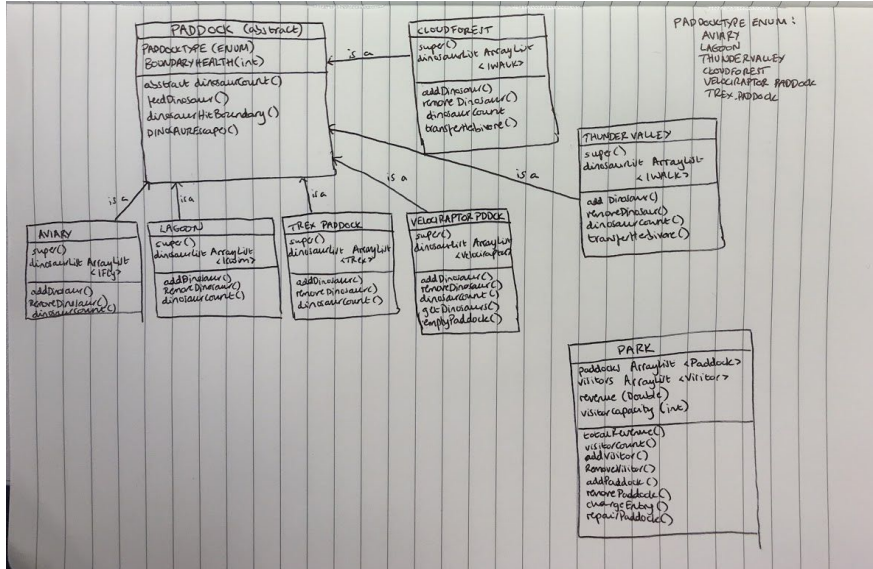 PADDOCK (abstract)
PADDOCKTYPE (ENUM)
BOUNDARYHEALTH(int)
abstract dinosaurCount()
feedDinosaur()
dinosaurHitBoundary()
DINOSAUREscape()
is a
CLOUDFOREST
super()
dinosaurList ArrayList
<IWALK>
addDinosaur()
remove Dinosaur()
dinosaurcount
transferHerbivore()
PADDOCKTYPE ENUM:
AVIARY
LAGOON
THUNDERVALLEY
CLOUDFOREST
VELOCIRAPTOR PADDOCK
TREX.PADDOCK
THUNDER VALLEY
super()
dinosaurList ArrayList
<IWALK>
add Dinosaur()
removeDinosaur()
dinosaurcount()
transferHerbivore()
is a
is a
is a
is a
is a
AVIARY
super()
dinosaurList ArrayList
<IFly>
addDinosaur()
RemoveDinosaur()
dinosaurcount()
LAGOON
super()
dinosaurList ArrayList
<ISwim>
addDinosaur()
RemoveDinosaur()
dinosaurcount()
TREX PADDOCK
super()
dinosaurList ArrayList
<TRex>
addDinosaur()
remove Dinosaur()
dinosaurcount()
VELOCIRAPTOR PDDOCK
super()
dinosaurList ArrayList
<Velociraptor>
addDinosaur()
removeDinosaur()
dinosaurcount()
getDinosaurs()
emptyPaddock()
PARK
paddocks ArrayList <Paddock>
visitors ArrayList <Visitor>
revenue (Double)
visitorcapacity (int)
totalRevenue()
visitorcount()
addVisitor()
RemoveVisitor()
addPaddock()
removePaddock()
chargeEntry()
repairPaddock()